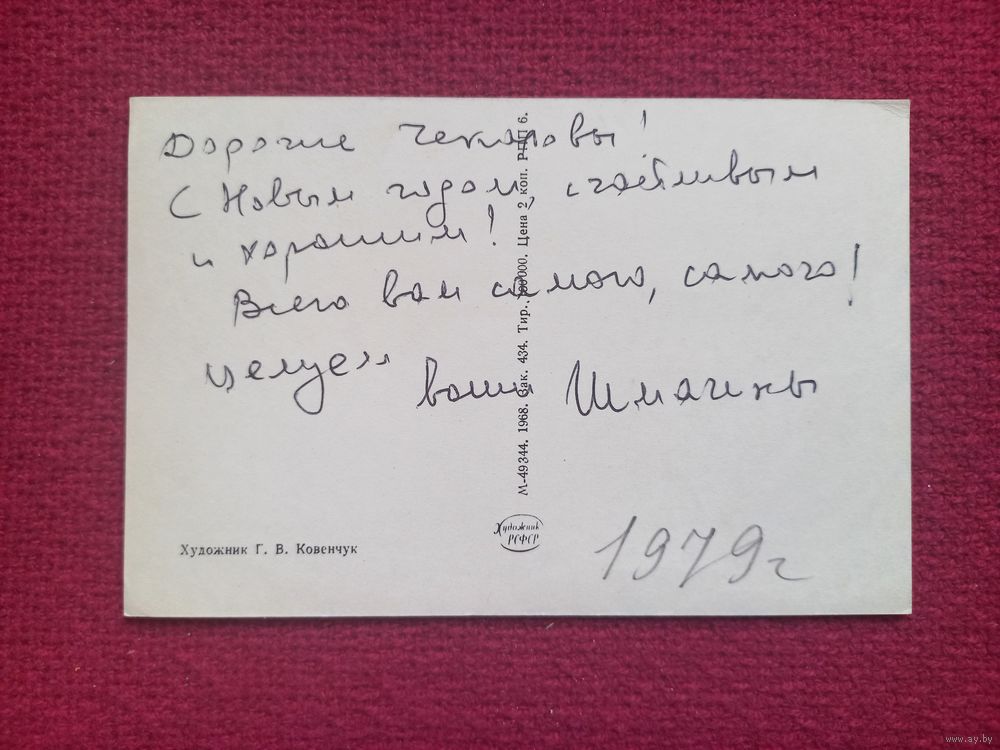 Дорогие Чекаловы!
С Новым годом, счастливым
и хорошим!
Всего вам самого, самого!
Целуем
ваши Шмагины
М-49344. 1968. Зак. 434. Тир. Цена 2 коп. РПП 6.
Художник Г. В. Ковенчук
Художник
РСФСР
1979г
www.ay.by